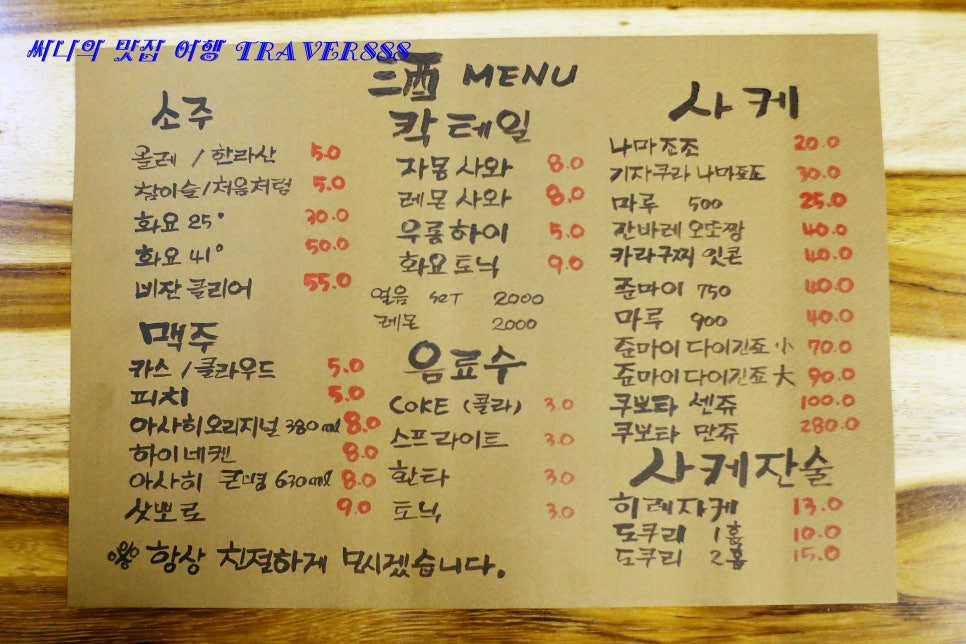 써니의 맛집 여행 TRAVER888
酒 MENU
소주
올레 / 한라산 5.0
참이슬/처음처럼 5.0
화요 25° 30.0
화요 41° 50.0
비잔 클리어 55.0
맥주
카스 / 클라우드 5.0
피치 5.0
아사히오리지널 380ml 8.0
하이네켄 8.0
아사히 큰병 630ml 8.0
삿뽀로 9.0
칵테일
자몽사와 8.0
레몬사와 8.0
우롱하이 5.0
화요토닉 9.0
얼음 SET 2000
레몬 2000
음료수
COKE (콜라) 3.0
스프라이트 3.0
환타 3.0
토닉 3.0
사케
나마죠조 20.0
기자쿠라 나마죠조 30.0
마루 500 25.0
간바레 오또짱 40.0
카라구찌 잇콘 40.0
준마이 750 40.0
마루 900 40.0
준마이 다이긴죠 小 70.0
쥰마이다이긴죠 大 90.0
쿠뽀타 센쥬 100.0
쿠뽀타 만쥬 280.0
사케잔술
히레자케 13.0
도쿠리 1홉 10.0
도쿠리 2홉 15.0
항상 친절하게 모시겠습니다.